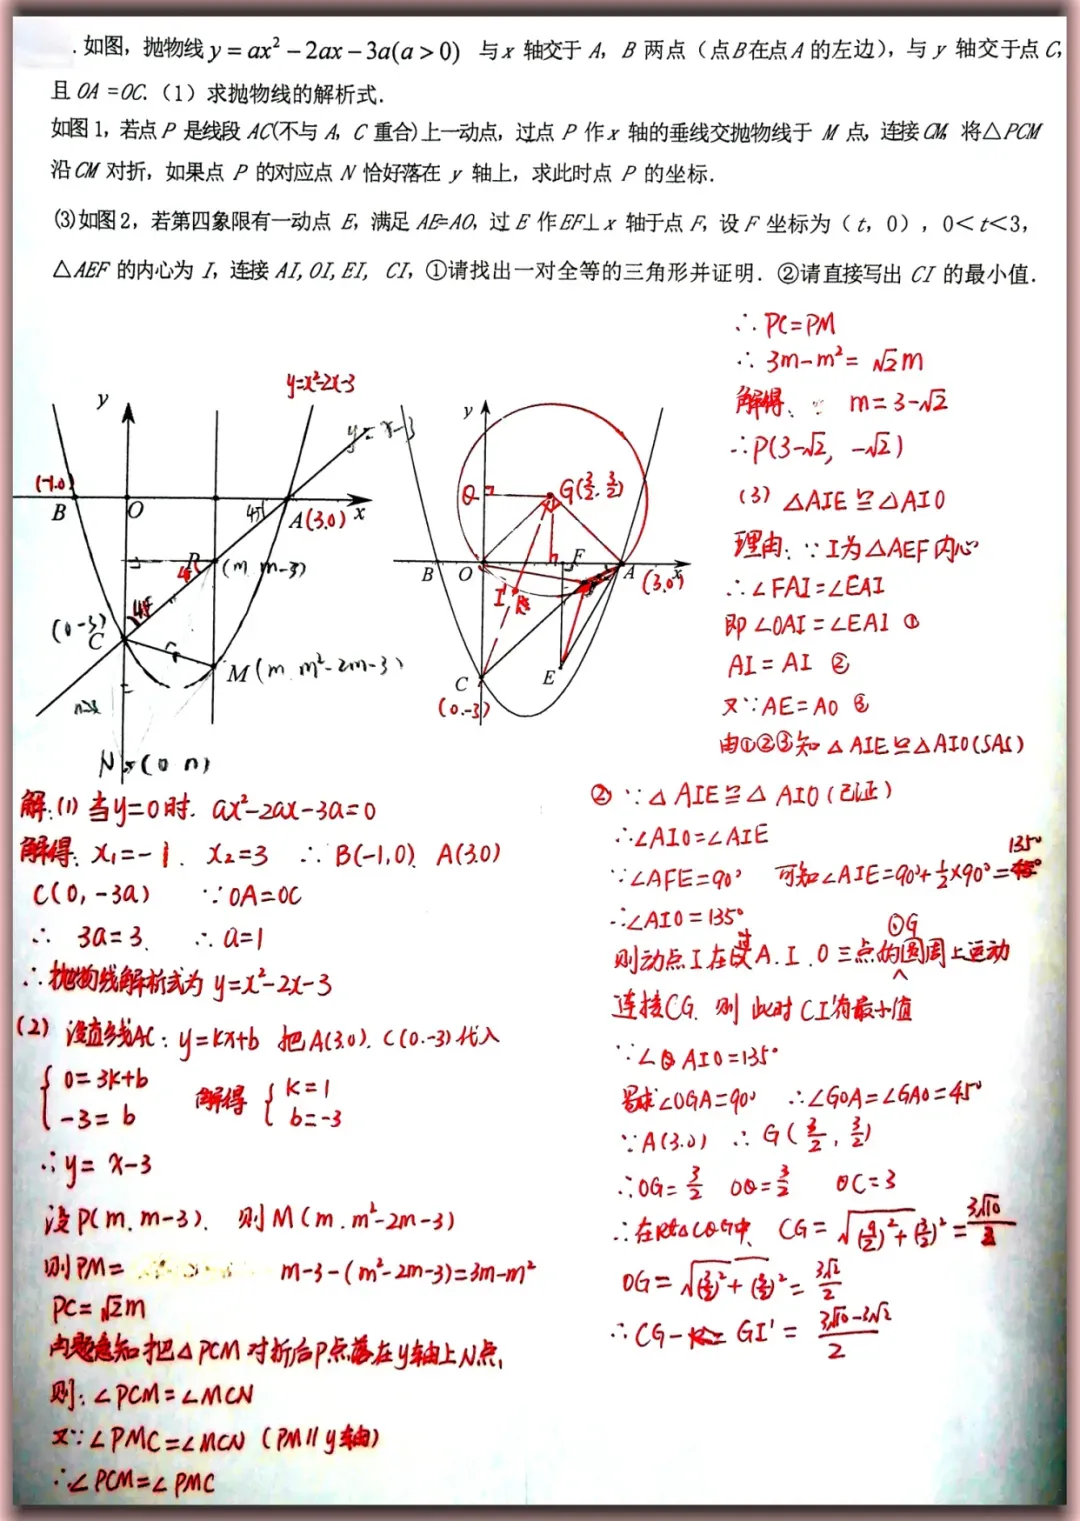 .如图，抛物线 y = ax² − 2ax − 3a(a > 0) 与 x 轴交于 A，B 两点（点 B 在点 A 的左边），与 y 轴交于点 C，
且 OA =OC.（1）求抛物线的解析式.
如图 1，若点 P 是线段 AC(不与 A，C 重合)上一动点，过点 P 作 x 轴的垂线交抛物线于 M 点，连接 CM，将△PCM
沿 CM 对折，如果点 P 的对应点 N 恰好落在 y 轴上，求此时点 P 的坐标.
(3)如图 2，若第四象限有一动点 E，满足 AE=AO，过 E 作 EF⊥x 轴于点 F，设 F 坐标为（t，0），0＜t＜3，
△AEF 的内心为 I，连接 AI，OI，EI， CI，①请找出一对全等的三角形并证明. ②请直接写出 CI 的最小值.
∴ PC=PM
∴ 3m−m²= √2m
解得: m=3−√2
∴P(3−√2, −√2)
(3) △AIE≌△AIO
理由: ∵I为△AEF内心
∴∠FAI=∠EAI
即∠OAI=∠EAI ①
AI=AI ②
又∵AE=AO ③
由①②③知△AIE≌△AIO(SAS)
y=x²−2x−3
y
y=x−3
(-1.0)
B
O
45°
A(3.0)
x
P
(m, m−3)
45°
45°
(0−3)
C
M(m. m²−2m−3)
N (0 n)
y
Q
G(3/2, 3/2)
B
O
F
A
x
(3.0)
I'
E
C
(0.-3)
解:(1)当y=0时. ax²−2ax−3a=0
解得: x₁=−1. x₂=3 ∴B(−1,0). A(3.0)
C(0, −3a) ∵OA=OC
∴ 3a=3. ∴a=1
∴抛物线解析式为 y=x²−2x−3
(2) 设直线AC: y=kx+b 把A(3.0). C(0.−3)代入
{ 0=3k+b 解得 { k=1
−3=b b=−3
∴y= x−3
设P(m, m−3). 则M(m. m²−2m−3)
则PM= m−3−(m²−2m−3)=3m−m²
PC=√2m
由题意知把△PCM对折后P点落在y轴上N点,
则: ∠PCM=∠MCN
又∵∠PMC=∠MCN (PM∥y轴)
∴∠PCM=∠PMC
② ∵△AIE≌△AIO(已证)
∴∠AIO=∠AIE
∵∠AFE=90° 可知∠AIE=90°+½×90°=135°
∴∠AIO=135°
则动点I在过A.I.O三点的⊙G圆周上运动
连接CG. 则此时CI'有最小值
∵∠AIO=135°
易求∠OGA=90° ∴∠GOA=∠GAO=45°
∵A(3.0) ∴G(3/2, 3/2)
∴QG=3/2 OQ=3/2 OC=3
∴在Rt△CQG中, CG=√((9/2)²+(3/2)²)=3√10/2
OG=√((3/2)²+(3/2)²)=3√2/2
∴CG−GI'=(3√10−3√2)/2